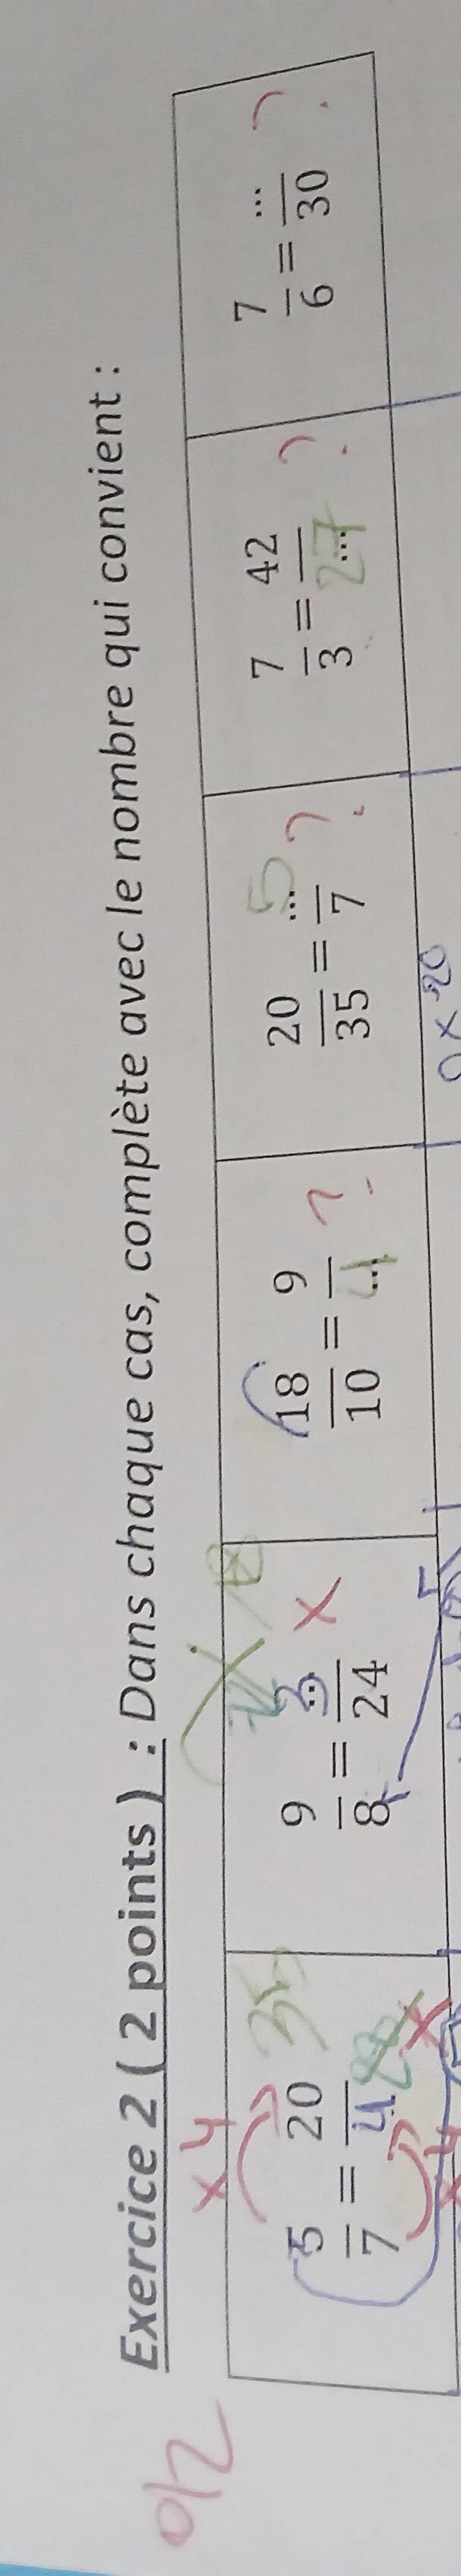 0/2
Exercice 2 ( 2 points ) : Dans chaque cas, complète avec le nombre qui convient :
x 4
5/7 = 20/4 35 28 x
x 4
9/8 = 3/24 x
18/10 = 9/4 ?
20/35 = 5/7 ?
7/3 = 42/27 ?
7/6 = .../30 ?
0 x 20